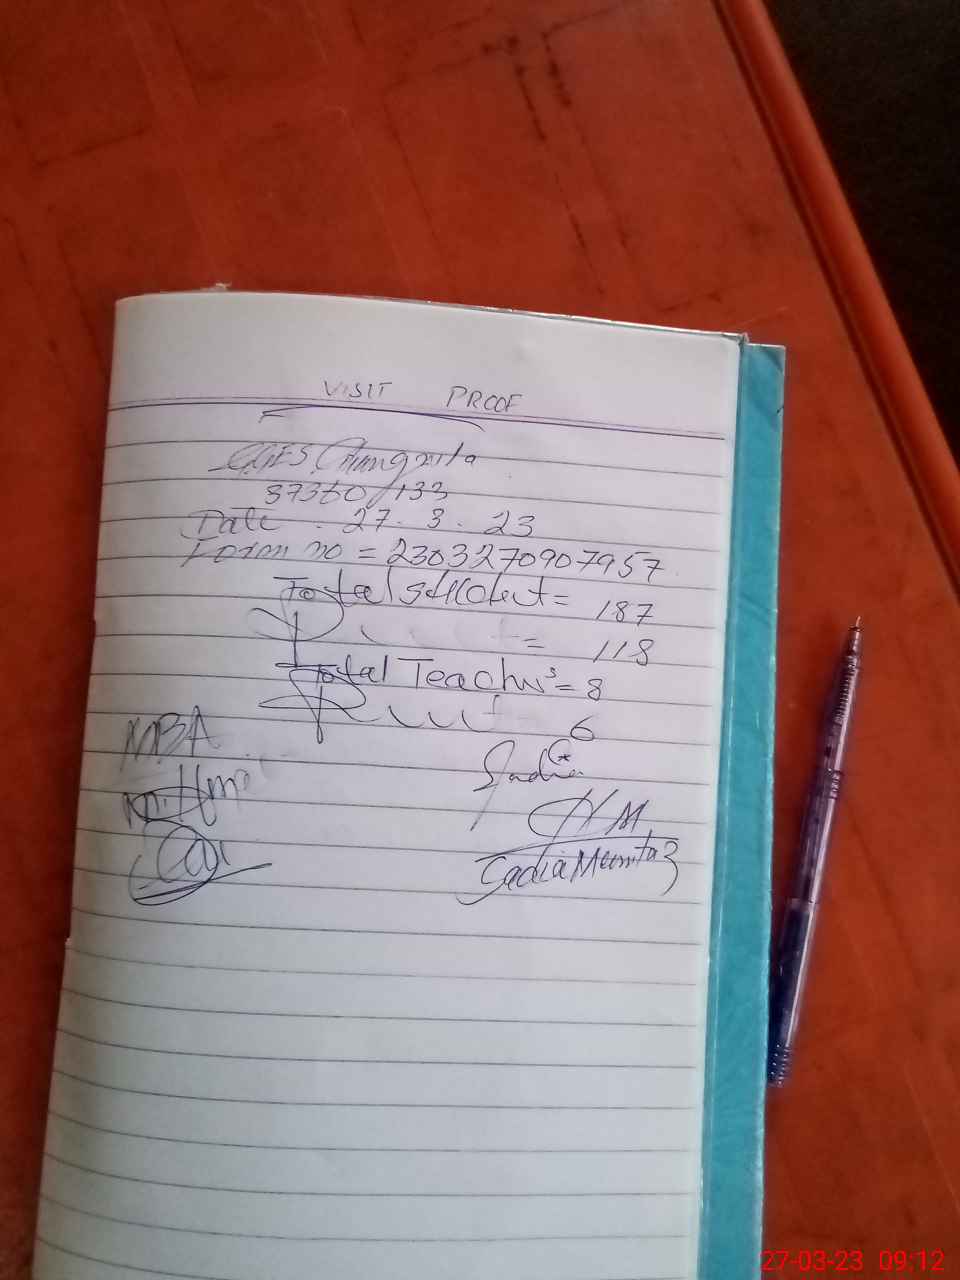 VISIT PROOF
GGES Chungnula
37360133
Date . 27 . 3 . 23
Form no = 2303270907957
Total = 187
= 118
Total Teachers = 8
6
MBA
Sadia
HM
Sadia Mumtaz
27-03-23 09:12